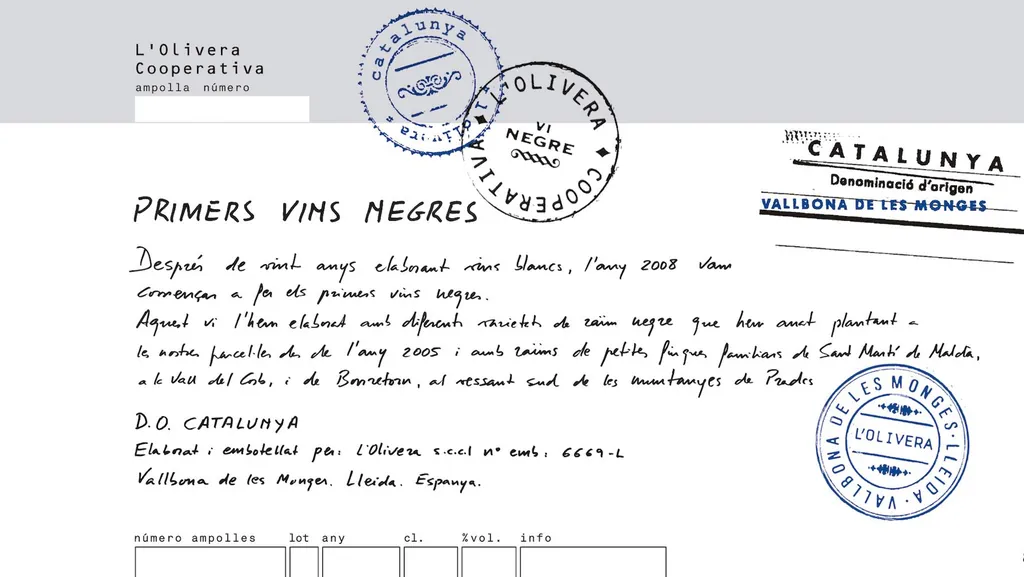 L'Olivera
Cooperativa
ampolla número
catalunya
olivera
L'OLIVERA COOPERATIVA
VI
NEGRE
CATALUNYA
Denominació d'origen
VALLBONA DE LES MONGES
PRIMERS VINS NEGRES
Després de vint anys elaborant vins blancs, l'any 2008 vam
començar a fer els primers vins negres.
Aquest vi l'hem elaborat amb diferents varietats de raïm negre que hem anat plantant a
les nostres parcel·les des de l'any 2005 i amb raïms de petites finques familiars de Sant Martí de Maldà,
a la Vall del Corb, i de Bonretorn, al vessant sud de les muntanyes de Prades
VALLBONA DE LES MONGES · LLEIDA ·
L'OLIVERA
D.O. CATALUNYA
Elaborat i embotellat per: L'Olivera s.c.c.l nº emb: 6669-L
Vallbona de les Monges. Lleida. Espanya.
número ampolles lot any cl. %vol. info